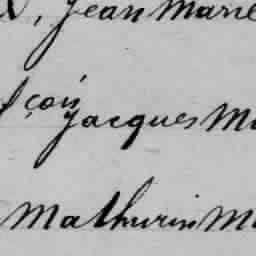 , Jean Marie
fçois Jacques M
Mathurin M